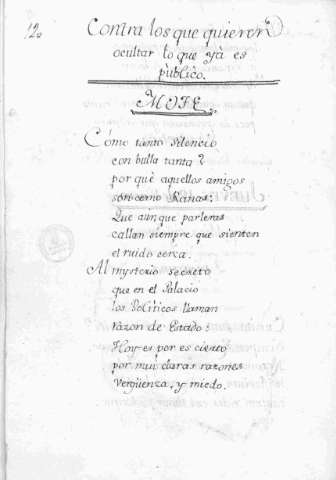 12.
Contra los que quieren
ocultar lo que yà es
publico.
MOTE
Cómo tanto silencio
con bulla tanta?
por què aquellos amigos
son como Ranas:
Que aunque parleras
callan siempre que sienten
el ruido cerca.
Al mysterio secreto
que en el Palacio
los Politicos llaman
razon de Estado:
Hoy es por es cierto
por mui claras razones
verguenza, y miedo.